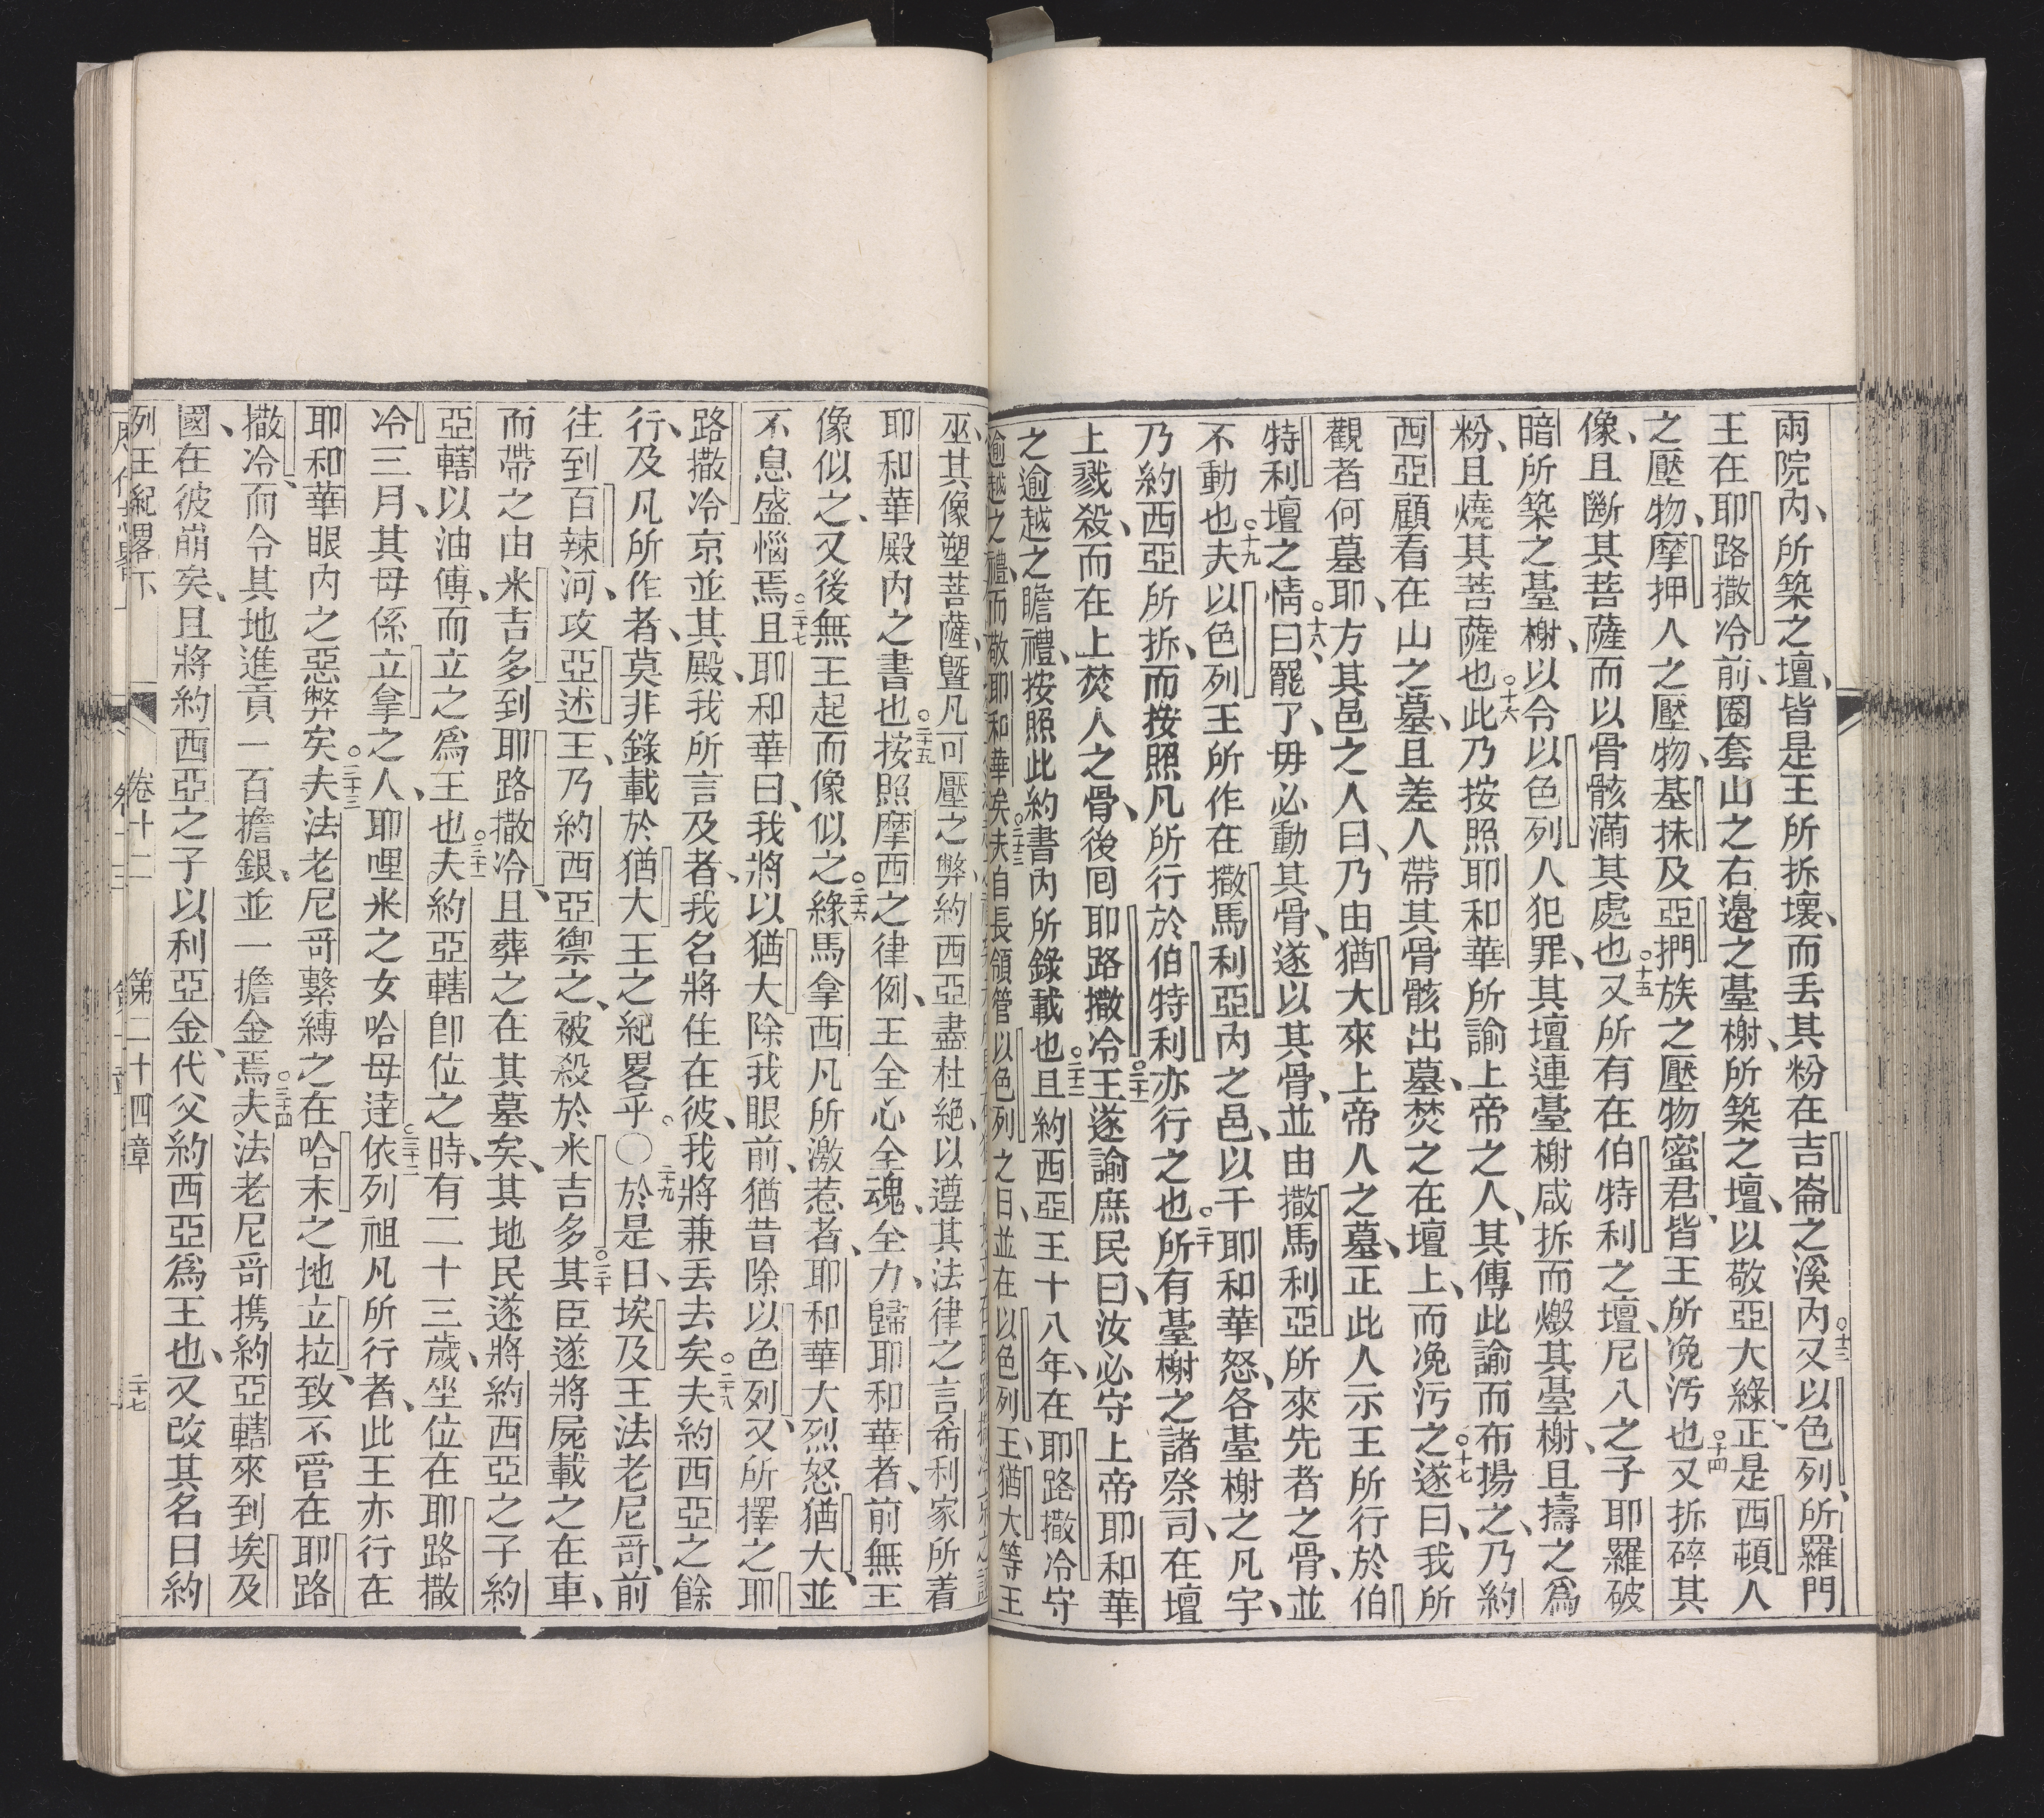 兩院內、所築之壇、皆是王所拆壞、而丟其粉在吉崙之溪內○十三又以色列、所羅門
王在耶路撒冷前、圈套山之右邊之臺榭、所築之壇、以敬亞大綠、正是西頓人
之壓物、摩押人之壓物、基抹及亞捫族之壓物蜜君、皆王所浼污也○十四又拆碎其
像、且斷其菩薩而以骨骸滿其處也○十五又所有在伯特利之壇、尼八之子耶羅破
暗所築之臺榭、以令以色列人犯罪、其壇連臺榭咸拆而燬其臺榭、且擣之爲
粉、且燒其菩薩也○十六此乃按照耶和華所諭上帝之人、其傳此諭而布揚之、乃約
西亞顧看在山之墓、且差人帶其骨骸出墓、焚之在壇上、而浼污之○十七遂曰、我所
觀者何墓耶、方其邑之人曰、乃由猶大來上帝人之墓、正此人示王所行於伯
特利壇之情○十八曰罷了、毋必動其骨、遂以其骨、並由撒馬利亞所來先者之骨、並
不動也○十九夫以色列王所作在撒馬利亞內之邑、以干耶和華怒、各臺榭之凡宇、
乃約西亞所拆、而按照凡所行於伯特利亦行之也○二十所有臺榭之諸祭司、在壇
上戮殺、而在上焚人之骨、後回耶路撒冷○二十一王遂諭庶民曰、汝必守上帝耶和華
之逾越之瞻禮、按照此約書內所錄載也○二十三且約西亞王十八年、在耶路撒冷守
逾越之禮、而敬耶和華矣○二十二夫自長領管以色列之日、並在以色列王、猶大等王
巫、其像塑菩薩、曁凡可壓之弊、約西亞盡杜絕、以遵其法律之言、希利家所着
耶和華殿內之書也○二十五按照摩西之律例、王全心全魂、全力、歸耶和華者、前無王
像似之、又後無王起而像似之○二十六緣馬拿西凡所激惹者、耶和華大烈怒猶大、並
不息盛惱焉○二十七且耶和華曰、我將以猶大除我眼前、猶昔除以色列、又所擇之耶
路撒冷京並其殿、我所言及者、我名將住在彼、我將兼丟去矣○二十八夫約西亞之餘
行、及凡所作者、莫非錄載於猶大王之紀畧乎。○二十九於是日、埃及王法老尼哥、前
往到百辣河、攻亞述王、乃約西亞禦之、被殺於米吉多○三十其臣遂將屍載之在車、
而帶之由米吉多到耶路撒冷、且葬之在其墓矣、其地民遂將約西亞之子約
亞轄以油傅、而立之爲王也○三十一夫約亞轄卽位之時、有二十三歲、坐位在耶路撒
冷三月、其母係立拿之人、耶哩米之女哈母達○三十二依列祖凡所行者、此王亦行在
耶和華眼內之惡弊矣○三十三夫法老尼哥繫縛之在哈末之地立拉、致不管在耶路
撒冷、而令其地進貢一百擔銀、並一擔金焉○三十四夫法老尼哥携約亞轄來到埃及
國、在彼崩矣、且將約西亞之子以利亞金、代父約西亞爲王也、又改其名曰約
列王紀畧下 卷十二 第二十四章 二十七